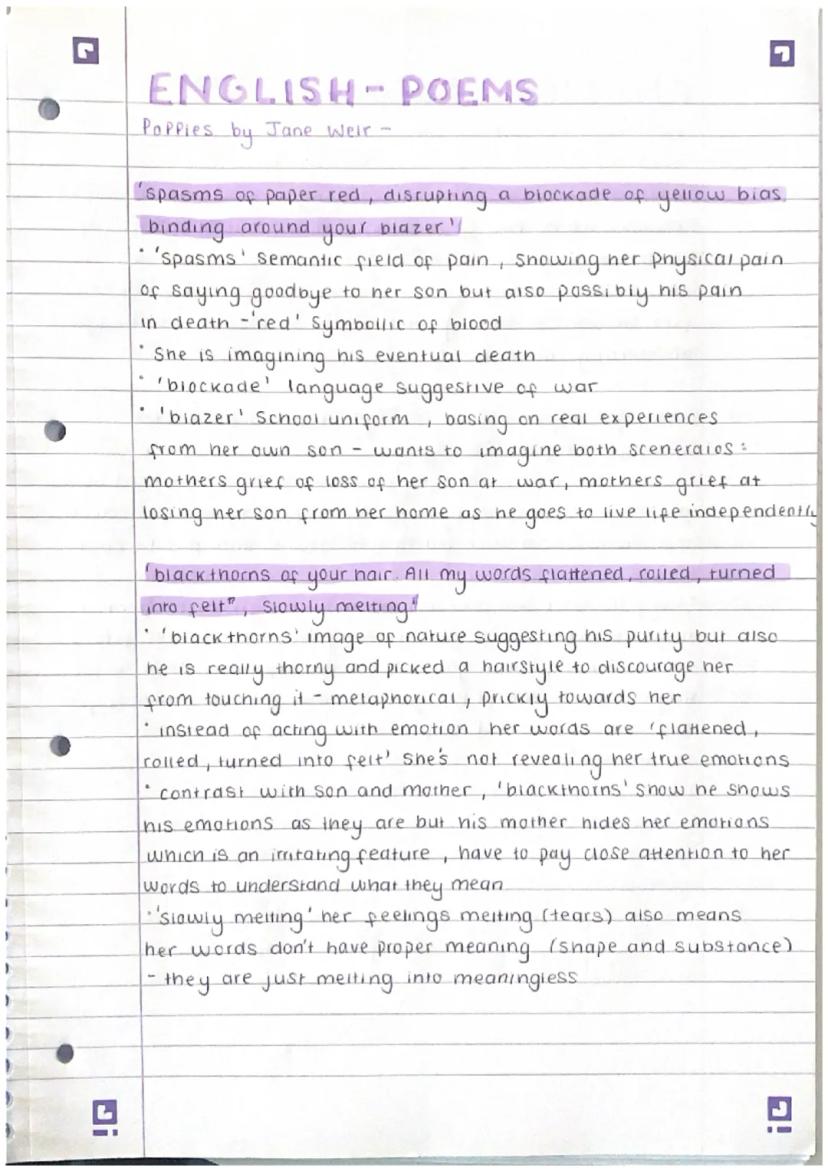 ENGLISH - POEMS
Poppies by Jane Weir -
'spasms of paper red, disrupting a blockade of yellow bias
binding around your blazer'
• 'Spasms' semantic field of pain, showing her physical pain
of saying goodbye to her son but also possibly his pain
in death - 'red' Symbollic of blood
• She is imagining his eventual death
• 'blockade' language suggestive of war
• 'blazer' School uniform, basing on real experiences
from her own son - wants to imagine both sceneraios:
mothers grief of loss of her son at war, mothers grief at
losing her son from her home as he goes to live life independently
'blackthorns of your hair. All my words flattened, rolled, turned
into felt", slowly melting'
• 'blackthorns' image of nature suggesting his purity but also
he is really thorny and picked a hairstyle to discourage her
from touching it - metaphorical, prickly towards her
• instead of acting with emotion her words are 'flattened,
rolled, turned into felt' She's not revealing her true emotions
• contrast with son and mother, 'blackthorns' show he shows
his emotions as they are but his mother hides her emotions
which is an irritating feature, have to pay close attention to her
words to understand what they mean
• 'slowly melting' her feelings melting (tears) also means
her words don't have proper meaning (shape and substance)
- they are just melting into meaningless